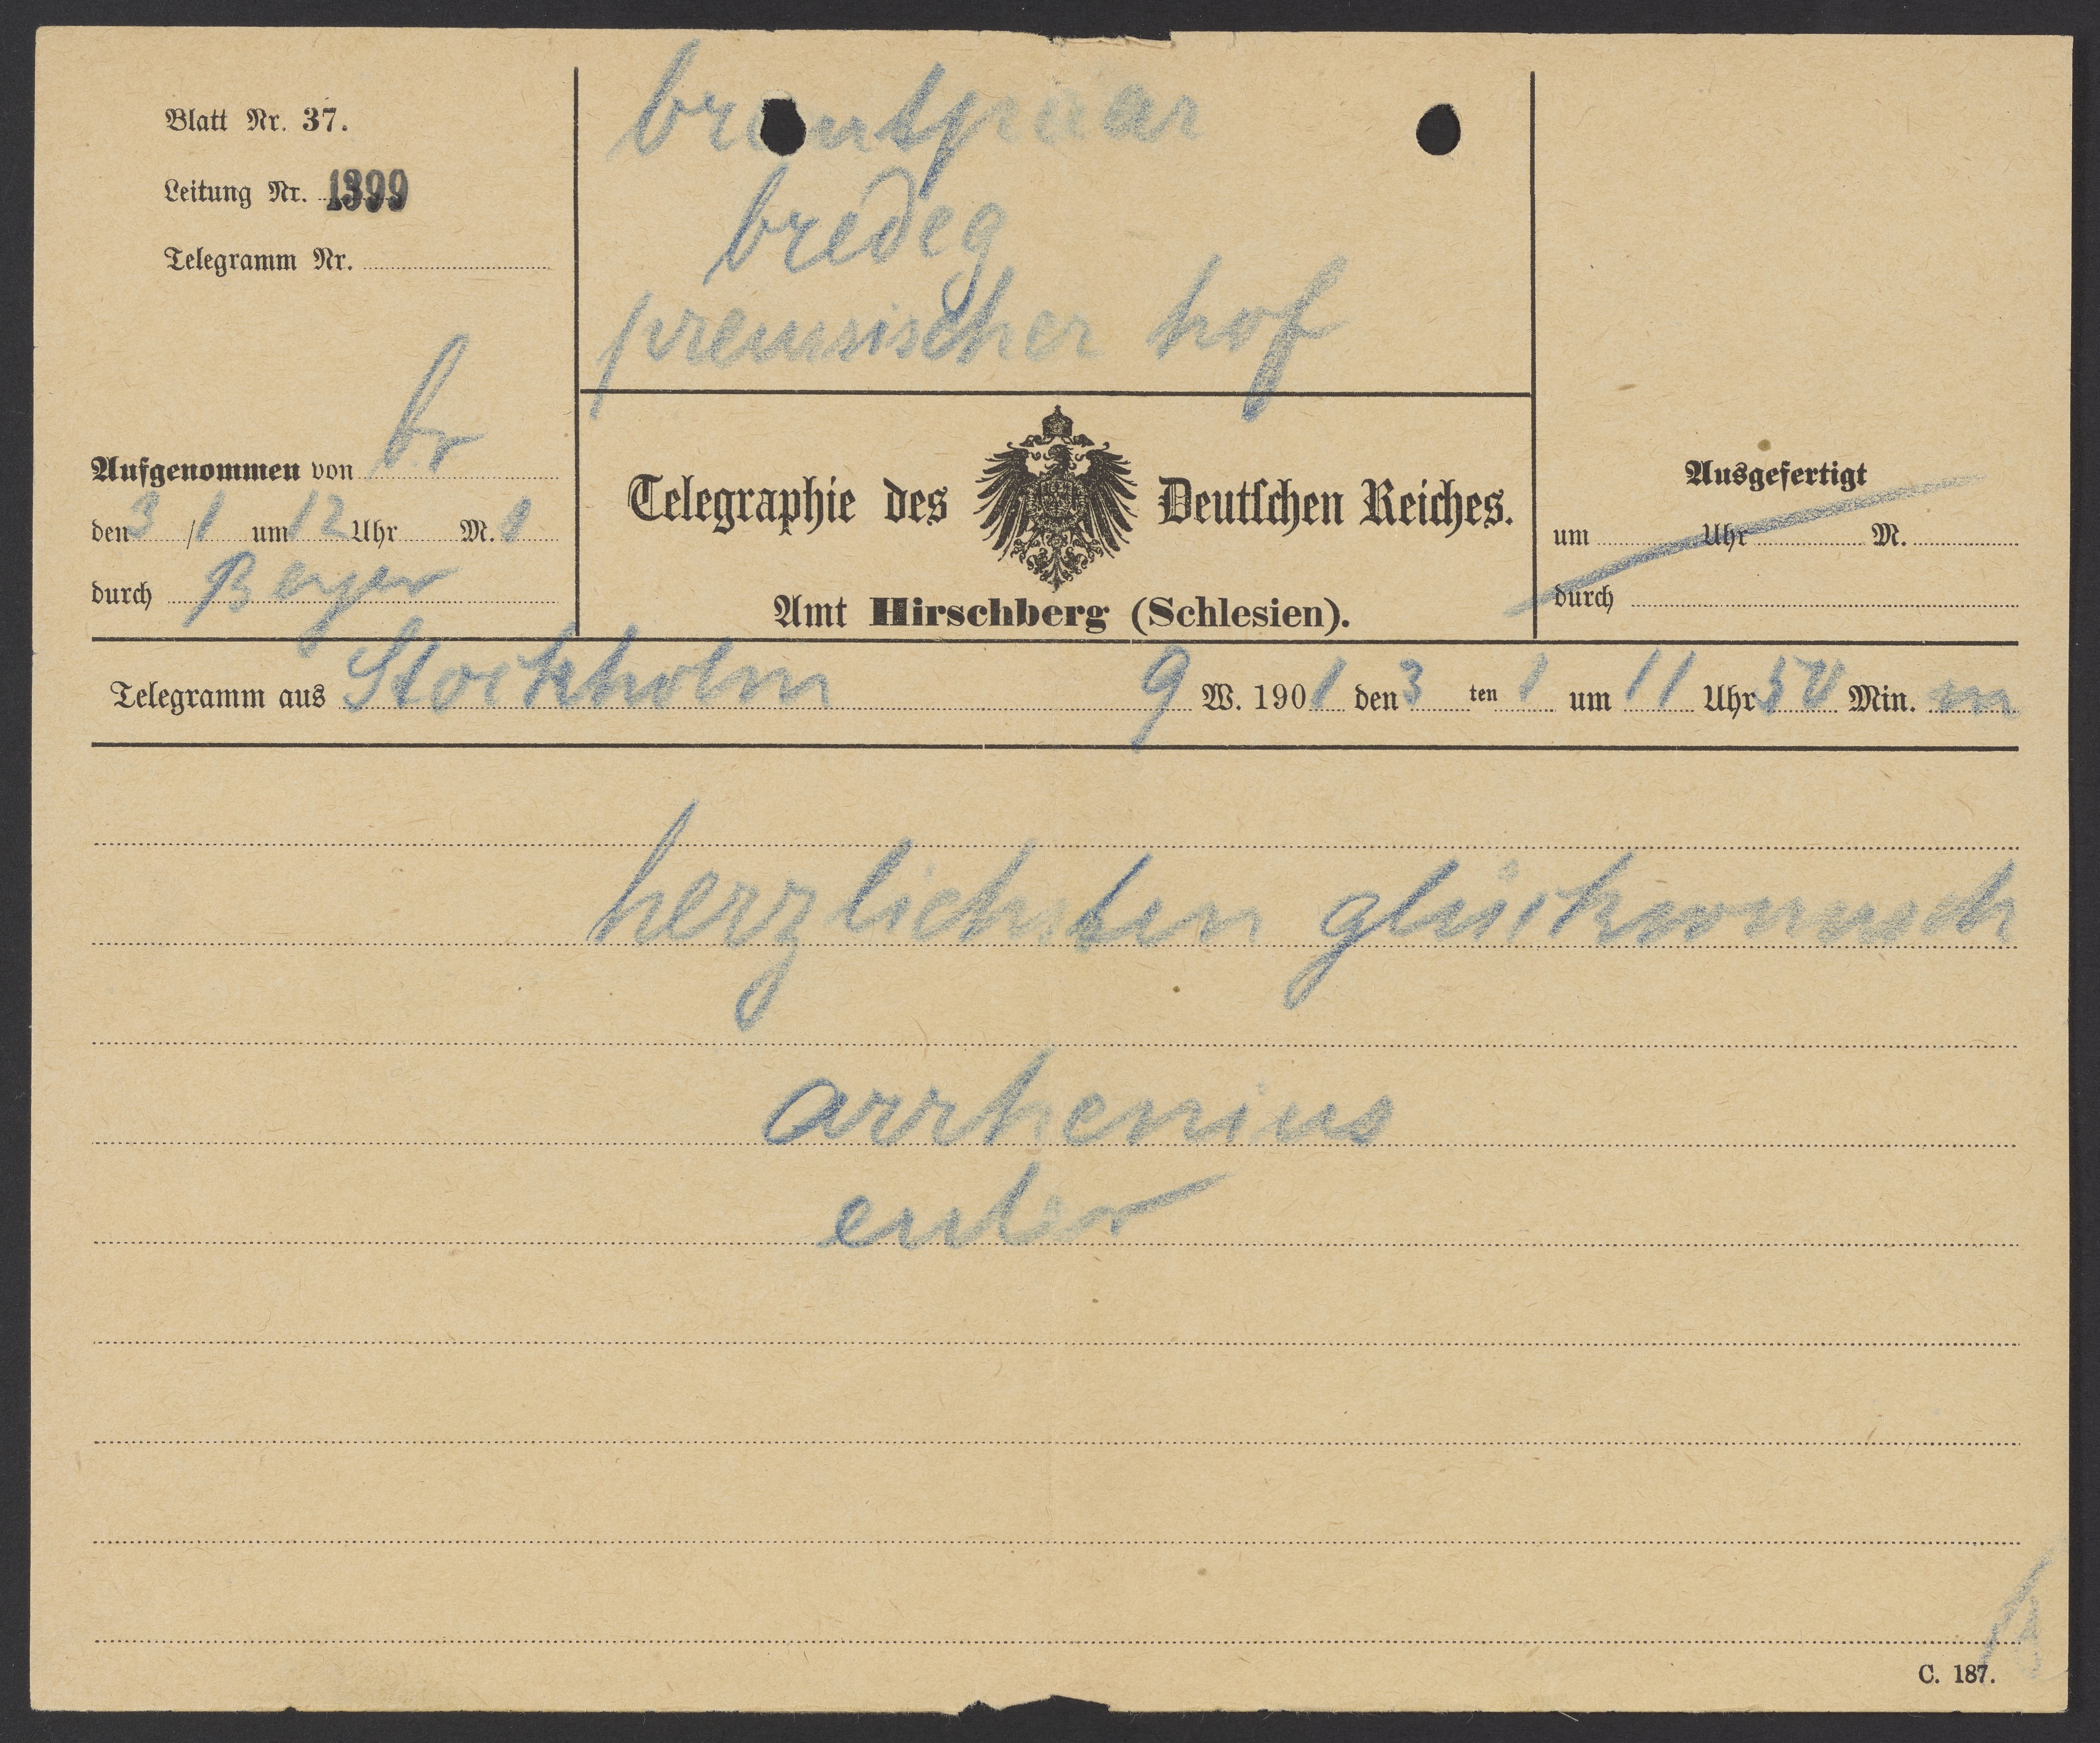 Blatt Nr. 37.
Leitung Nr. 1399
Telegramm Nr.
brautpaar
bredeg
preussischer hof
Aufgenommen von br
den 3 / 1 um 12 Uhr M.
durch Berger
Telegraphie des Deutschen Reiches.
Amt Hirschberg (Schlesien).
Ausgefertigt
um Uhr M.
durch
Telegramm aus Stockholm 9 W. 1901 den 3 ten 1 um 11 Uhr 50 Min. m
herzlichsten glückwunsch
arrhenius
C. 187.